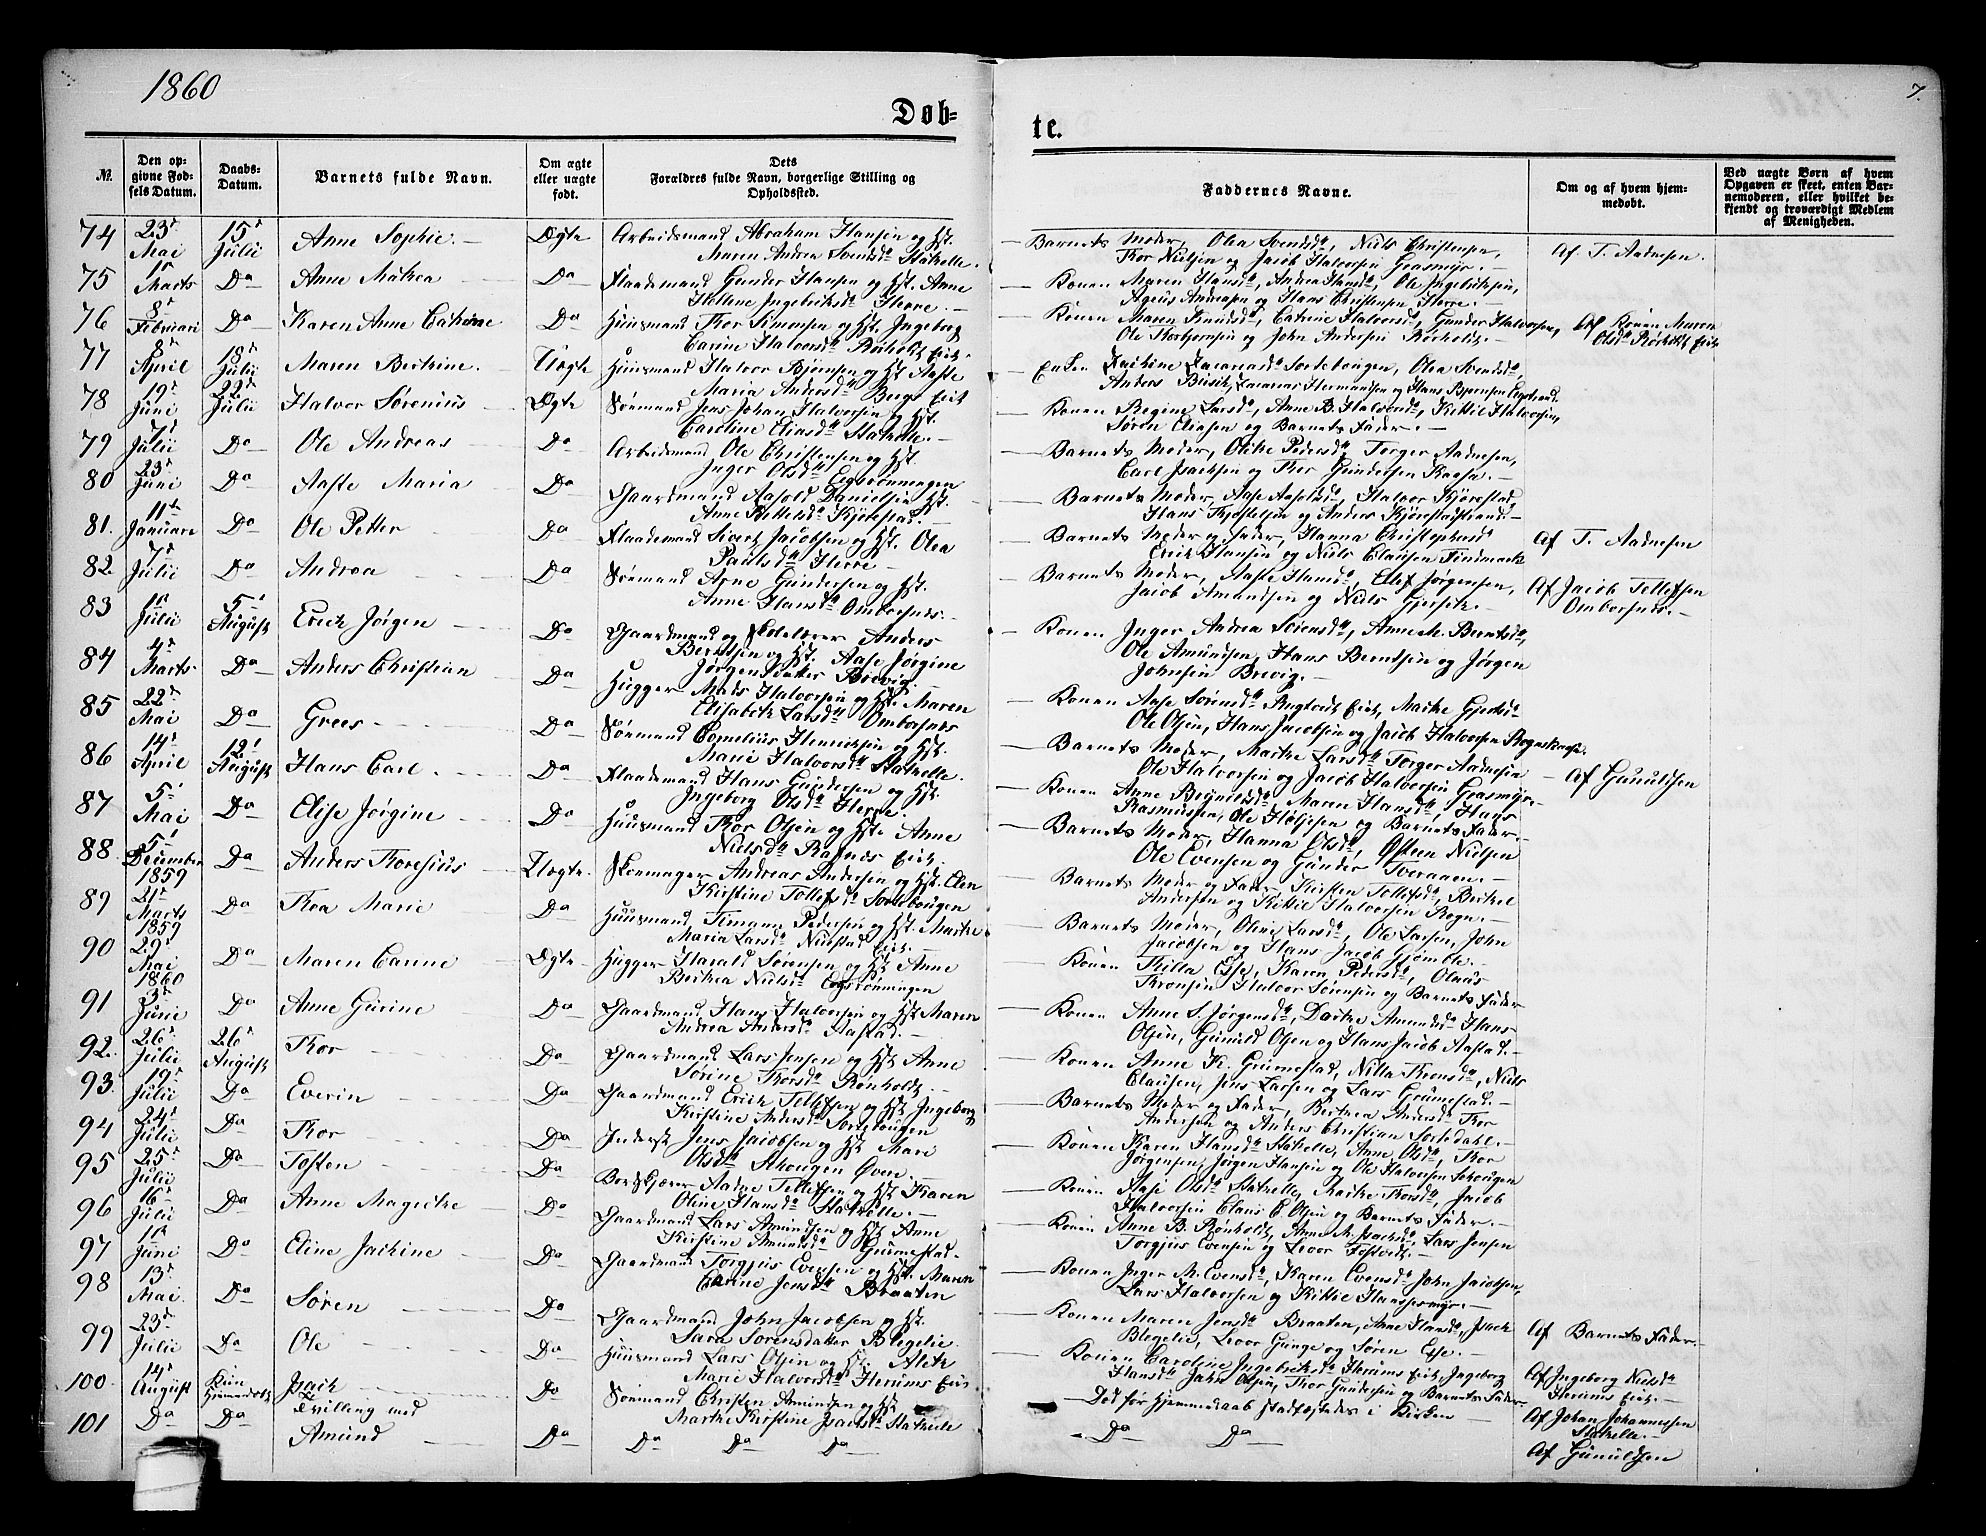 1860
7.
Døb-
te.
№
Den op-
givne Fød-
sels Datum.
Daabs-
Datum.
Barnets fulde Navn.
Om ægte
eller uægte
født.
Dets
Forældres fulde Navn, borgerlige Stilling og
Opholdssted.
Faddernes Navne.
Om og af hvem hjem-
medøbt.
Ved uægte Børn af hvem
Opgaven er skeet, enten Bar-
nemoderen, eller hvilket be-
kjendt og troværdigt Medlem
af Menigheden.
74 23de Mai 15de Julii Anne Sophie. Ægte Arbeidsmand Abraham Hansen og Hst.
Maren Andrea Svendsda Stathelle.
Barnets Moder, Olea Svendsda, Niels Christensen,
Thor Nielsen og Jacob Halvorsen Grasmyr.
Af T. Aadnesen.
75 Marts Do Anne Mathea Do Flaademand Gunder Hansen og Hst. Anne
Hellene Ingebriktsda Herre.
Konen Maren Hansda, Andrea Hansda, Ole Ingebriktsen,
Hans Christensen Herre.
76 8de Februari Do Karen Anne Cathrine Do Huusmand Thor Simonsen og Hst. Ingeborg
Carine Halvorsda Rørholt Eiet.
Konen Maren Knudsda, Catrine Halvorsda, Gunder Halvorsen,
Ole Thorbjørnsen og John Andersen Rørholt.
Af Konen Maren
Olsda Rørholt Eiet
77 8de April 18de Julii Maren Bertine. Uægte Huusmand Halvor Bjørnsen og Hst Aaste
Maria Andersda Berge Eiet
Olea Svendsda,
Anders Hermandsen og Hans Bjørnsen
78 19de Juni 22de Julii Halvor Sørenius Ægte Sømand Jens Johan Halvorsen og Hst.
Caroline Eliasda Stathelle.
Konen Regine Larsda, Anne B. Halvorsda, Kittil Halvorsen,
Søren Eliasen og Barnets Fader.
79 7de Julii Do Ole Andreas Do Arbeidsmand Ole Christensen og Hst.
Inger Olsda
Barnets Moder, Pedersda, Torger Aadnesen,
Carl Isaksen og Thor Gundersen
80 23de Juni Do Aaste Maria Do Gaardmand Aasold Danielsen Hst.
Anne Kittelsda Kjørstad.
Barnets Moder, Aase Aasoldsda, Halvor Kjørestad
Hans og Anders
81. 11te Januari Do Ole Petter Do Flaademand Sivert Jacobsen og Hst. Olea
Paulsda Herre
Barnets Moder og Fader, Hanna Christophersd
Erich Hansen og Niels Clausen Findmark
Af T. Aadnesen
82. 7de Julii Do Andrea Do Sømand Arne Gundersen og Hst.
Anne Hansda Omborsnes.
Barnets Moder, Aaste Hansda, Elef Jørgensen,
Jacob Amundsen og Niels
Af Jacob Tellefsen
Omborsnes.
83 Julii 5te August Erich Jørgen Do Gaardmand og Skolelærer Anders
Berntsen og Hst. Aase Jørgine
Jørgensdatter Brevig.
Konen Inger Andrea Sørensda, Anne M. Berntsda,
Ole Amundsen, Hans Berntsen og Jørgen
Johnsen Brevig.
84 4de Marts Do Anders Christian Do Hugger Mads Halvorsen og Hst. Maren
Elisabeth Larsda Omborsnes
Konen Aase Sørensda Eiet, Marthe
Ole Olsen, Hans Jacobsen og Jacob Halvorsen
85 22de Mai Do Grees Do Sømand Cornelius Henriksen og Hst.
Marie Halvorsda Stathelle.
Barnets Moder, Marthe Larsda Torger Aadnesen
Ole Halvorsen og Jacob Halvorsen Grasmyr.
86 14de April 12te August Hans Carl. Do Flaademand Hans Gundersen og Hst.
Ingeborg Olsda Herre.
Konen Anne Maren Hansda, Hans
Rasmussen, Ole og Barnets Fader.
Af Gunuldsen
87 5te Mai Do Elise Jørgine Do Huusmand Thor Olsen og Hst. Anne
Nielsda Rafnes Eiet.
Barnets Moder, Hanna Olsda, Østen Nielsen
Ole Evensen og Gunder
88 5te December 1859 Do Anders Thoresius Uægte. Skomager Andreas Andersen og Hst. Elen
Kirstine Tollefsda
Barnets Moder og Fader, Kirsten Tollefsda,
Andersen og Kittil Halvorsen Rogn.
89 21de Marts 1859 Do Thea Marie Do Huusmand Pedersen og Hst. Marthe
Maria Larsda Eiet.
Barnets Moder, Oline Larsda, Ole Larsen, John
Jacobsen og Hans Jacob
90 29de Mai 1860 Do Maren Carine Ægte Hugger Harald Sørensen og Hst Anne
Berthea Nielsda
Konen Karen Pedersda, Olaus
Halvor Sørensen og Barnets Fader
91 3de Juni Do Anne Gurine Do Gaardmand Hans Halvorsen og Hst Maren
Andrea Andersda Aafstad.
Konen Anne S. Jørgensda, Dorthe Amundsd Hans
Olsen, Gunuld Olsen og Hans Jacob Aafstad.
92. 26de Julii 26de August Thor Do Gaardmand Lars Jensen og Hst Anne
Sørine Thorsda Rønholt.
Konen Anne K. Grumestad, Niels
Clausen, Jens Larsen og Lars Grumestad.
93. 19de Julii Do Everin Do Gaardmand Erich Tellefsen og Hst Ingeborg
Kirstine Andersda
Barnets Moder og Fader, Berthea Andersda Thor
Andersen og Anders Christian Sortedahl.
94 24de Julii Do Thor Do Inderst Jens Jacobsen og Hst Mari
Olsda Skougen Øvre.
Konen Karen Hansda Stathelle, Anne Olsda, Thor
Jørgensen, Jørgen Hansen og Ole Halvorsen Skougen
95 25de Julii Do Tosten Do Bordskjærer Aadne Tellefsen og Hst Karen
Oline Hansda Stathelle.
Konen Aase Olsda Stathelle, Thorsda, Jacob
Halvorsen Claus E. Olsen og Barnets Fader.
96 16de Julii Do Anne Magrethe Do Gaardmand Lars Amundsen og Hst Anne
Kirstine Amundsda Grumestad.
Konen Anne B. Rønholt, Anne M. Isachsda, Lars Jensen
Torgjus Evensen og Levor
97 Juni Do Eline Jachine Do Gaardmand Torgjus Evensen og Hst. Maren
Carine Jensda Braaten
Konen Inger M. Evensda, Karen Evensda John Jacobsen,
Lars Halvorsen og Kittil
98 13de Mai. Do Søren Do Gaardmand John Jacobsen og Hst.
Sara Sørensdatter Blegelie.
Konen Maren Jensda Braaten, Anne Hansda, Isach
Blegelie, Levor Gunge og Søren
Af Barnets Fader.
99 23de Julii Do Ole Do Huusmand Lars Olsen og Hst. Aleth
Marie Halvorsda Herums Eiet
Konen Caroline Ingebriktsda Herums Eiet, Ingeborg
Hansda John Olsen, Thor Gundersen og Barnets Fader
Af Ingeborg Nielsda
Herums Eiet.
100. 14de August Kun Hjemmedøbt Isach Do Sømand Christen Amundsen og Hst
Marthe Kirstine Isachsda Stathelle
Død før Hjemmedaab stadfæstedes i Kirken
Af Johan Johannesen
Stathelle.
Tvilling med
101 Do Do Amund Do Do Do Do
Do Do
Af Gunuldsen